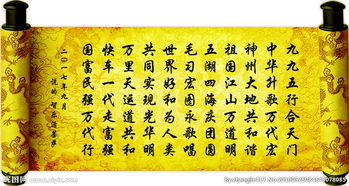 九九五行合天门
中华升歌万代宏
神州大地共和谐
祖国江山万道明
五湖四海庆团圆
毛习宏图永歌唱
世界好和为人类
共同实现光华明
万里天运道共荣
快车一代走富强
国富民强万代行
二〇一七年九月
昵图网
www.nipic.com